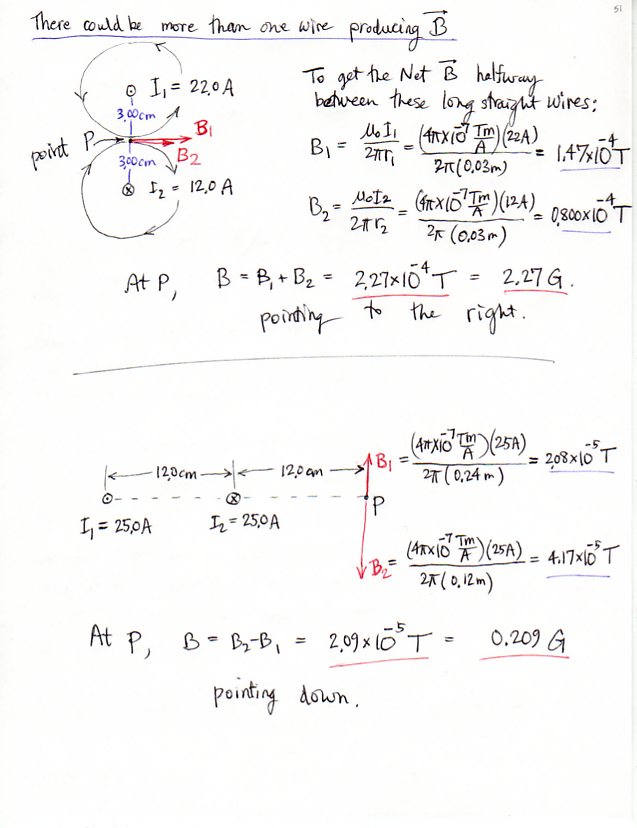 51
There could be more than one wire producing B⃗
I₁ = 22.0 A
3.00cm
point P
B₁
B₂
3.00cm
I₂ = 12.0 A
To get the Net B⃗ halfway
between these long straight wires:
B₁ = μ₀I₁/2πr₁ = (4π×10⁻⁷ Tm/A)(22A)/2π(0.03m) = 1.47×10⁻⁴ T
B₂ = μ₀I₂/2πr₂ = (4π×10⁻⁷ Tm/A)(12A)/2π(0.03m) = 0.800×10⁻⁴ T
At P, B = B₁ + B₂ = 2.27×10⁻⁴ T = 2.27 G.
pointing to the right.
12.0cm 12.0cm
B₁ = (4π×10⁻⁷ Tm/A)(25A)/2π(0.24m) = 2.08×10⁻⁵ T
P
I₁ = 25.0A I₂ = 25.0A
B₂ = (4π×10⁻⁷ Tm/A)(25A)/2π(0.12m) = 4.17×10⁻⁵ T
At P, B = B₂-B₁ = 2.09×10⁻⁵ T = 0.209 G
pointing down.